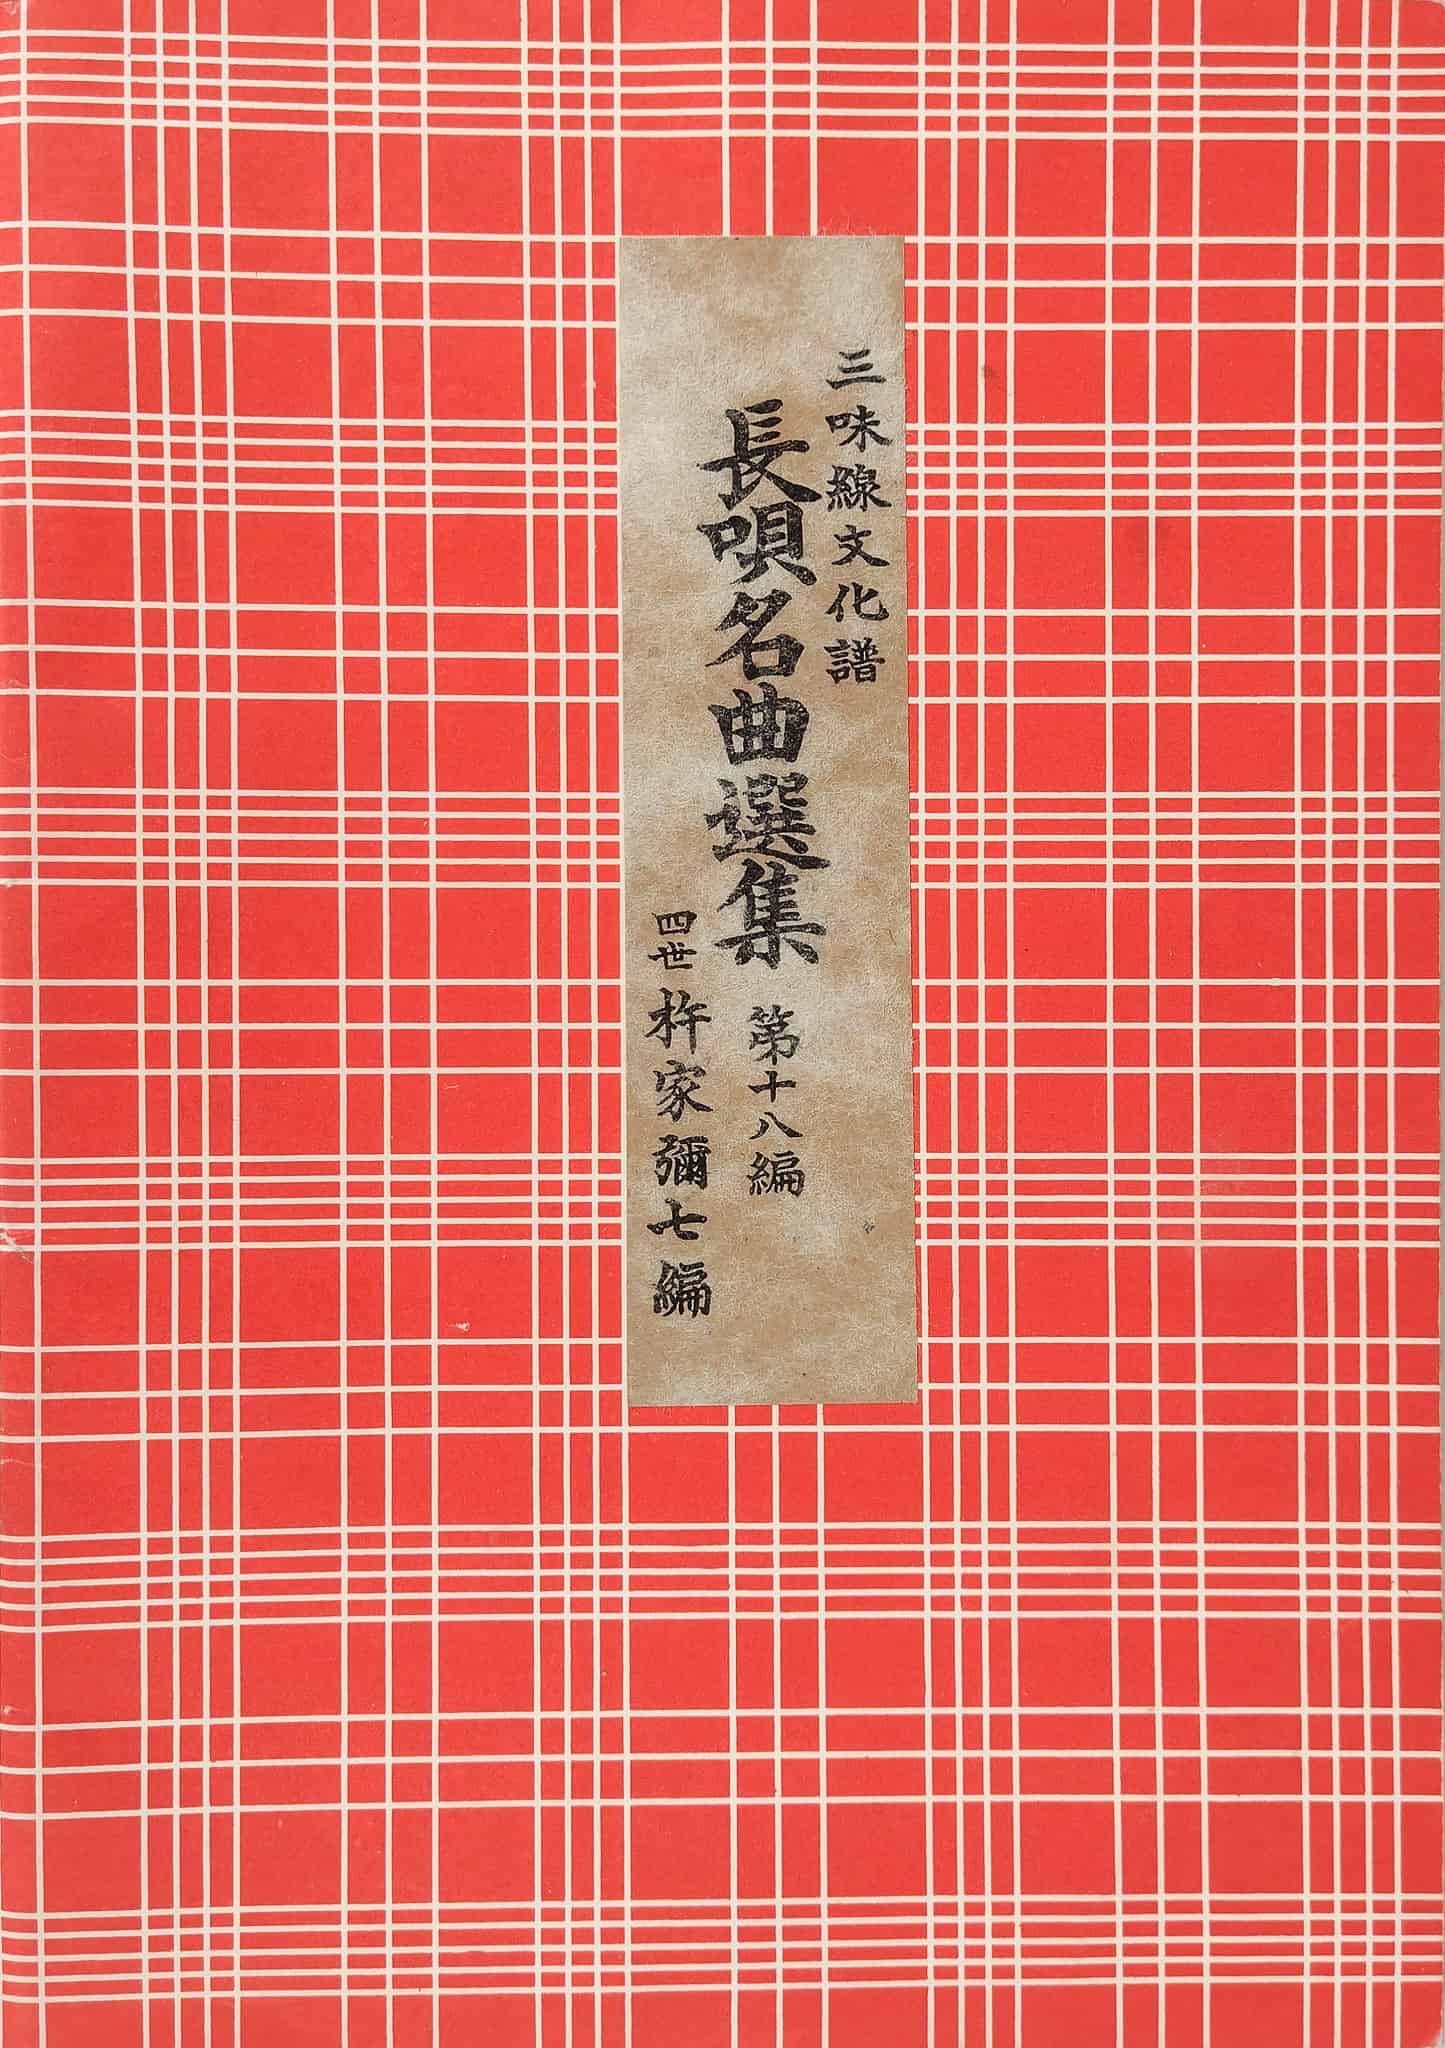 三味線文化譜
長唄名曲選集 第十八編
四世 杵家彌七編